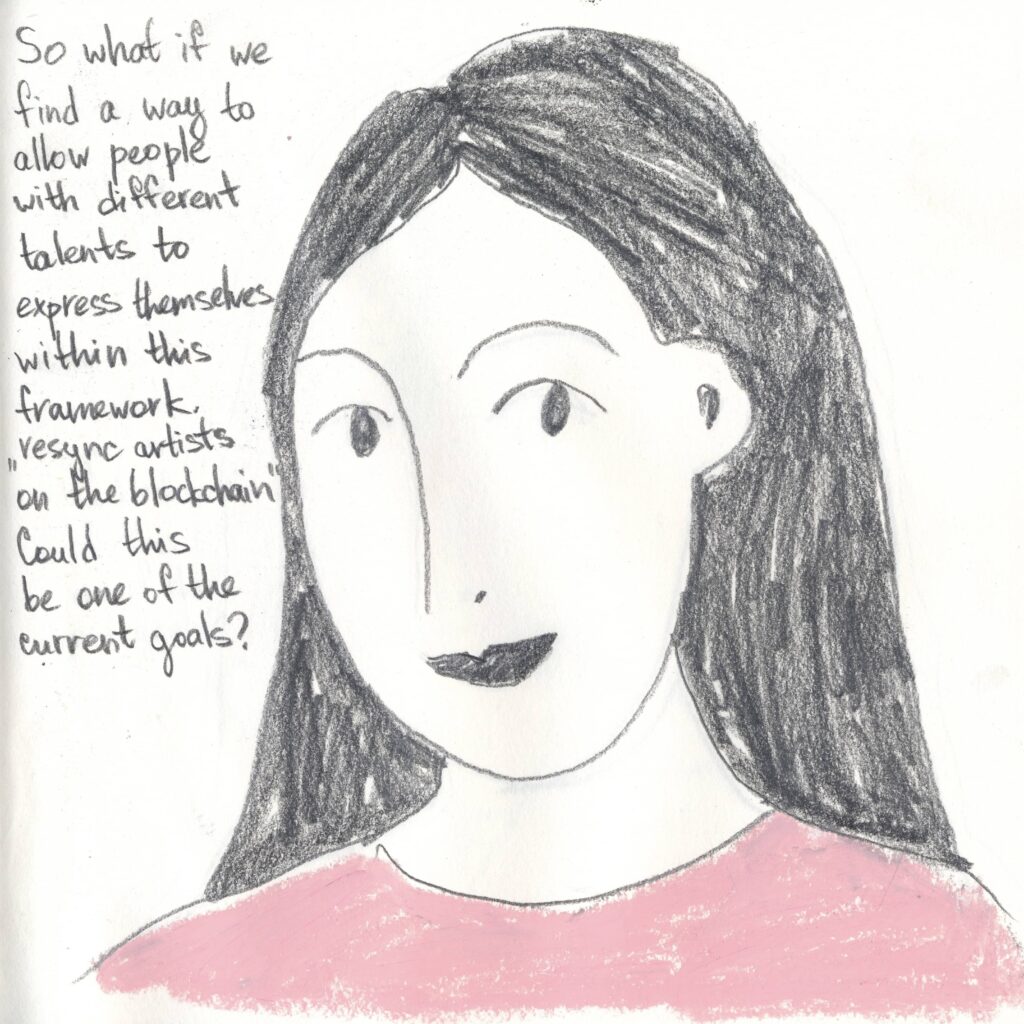 So what if we
find a way to
allow people
with different
talents to
express themselves
within this
framework.
"resync artists
on the blockchain"
Could this
be one of the
current goals?